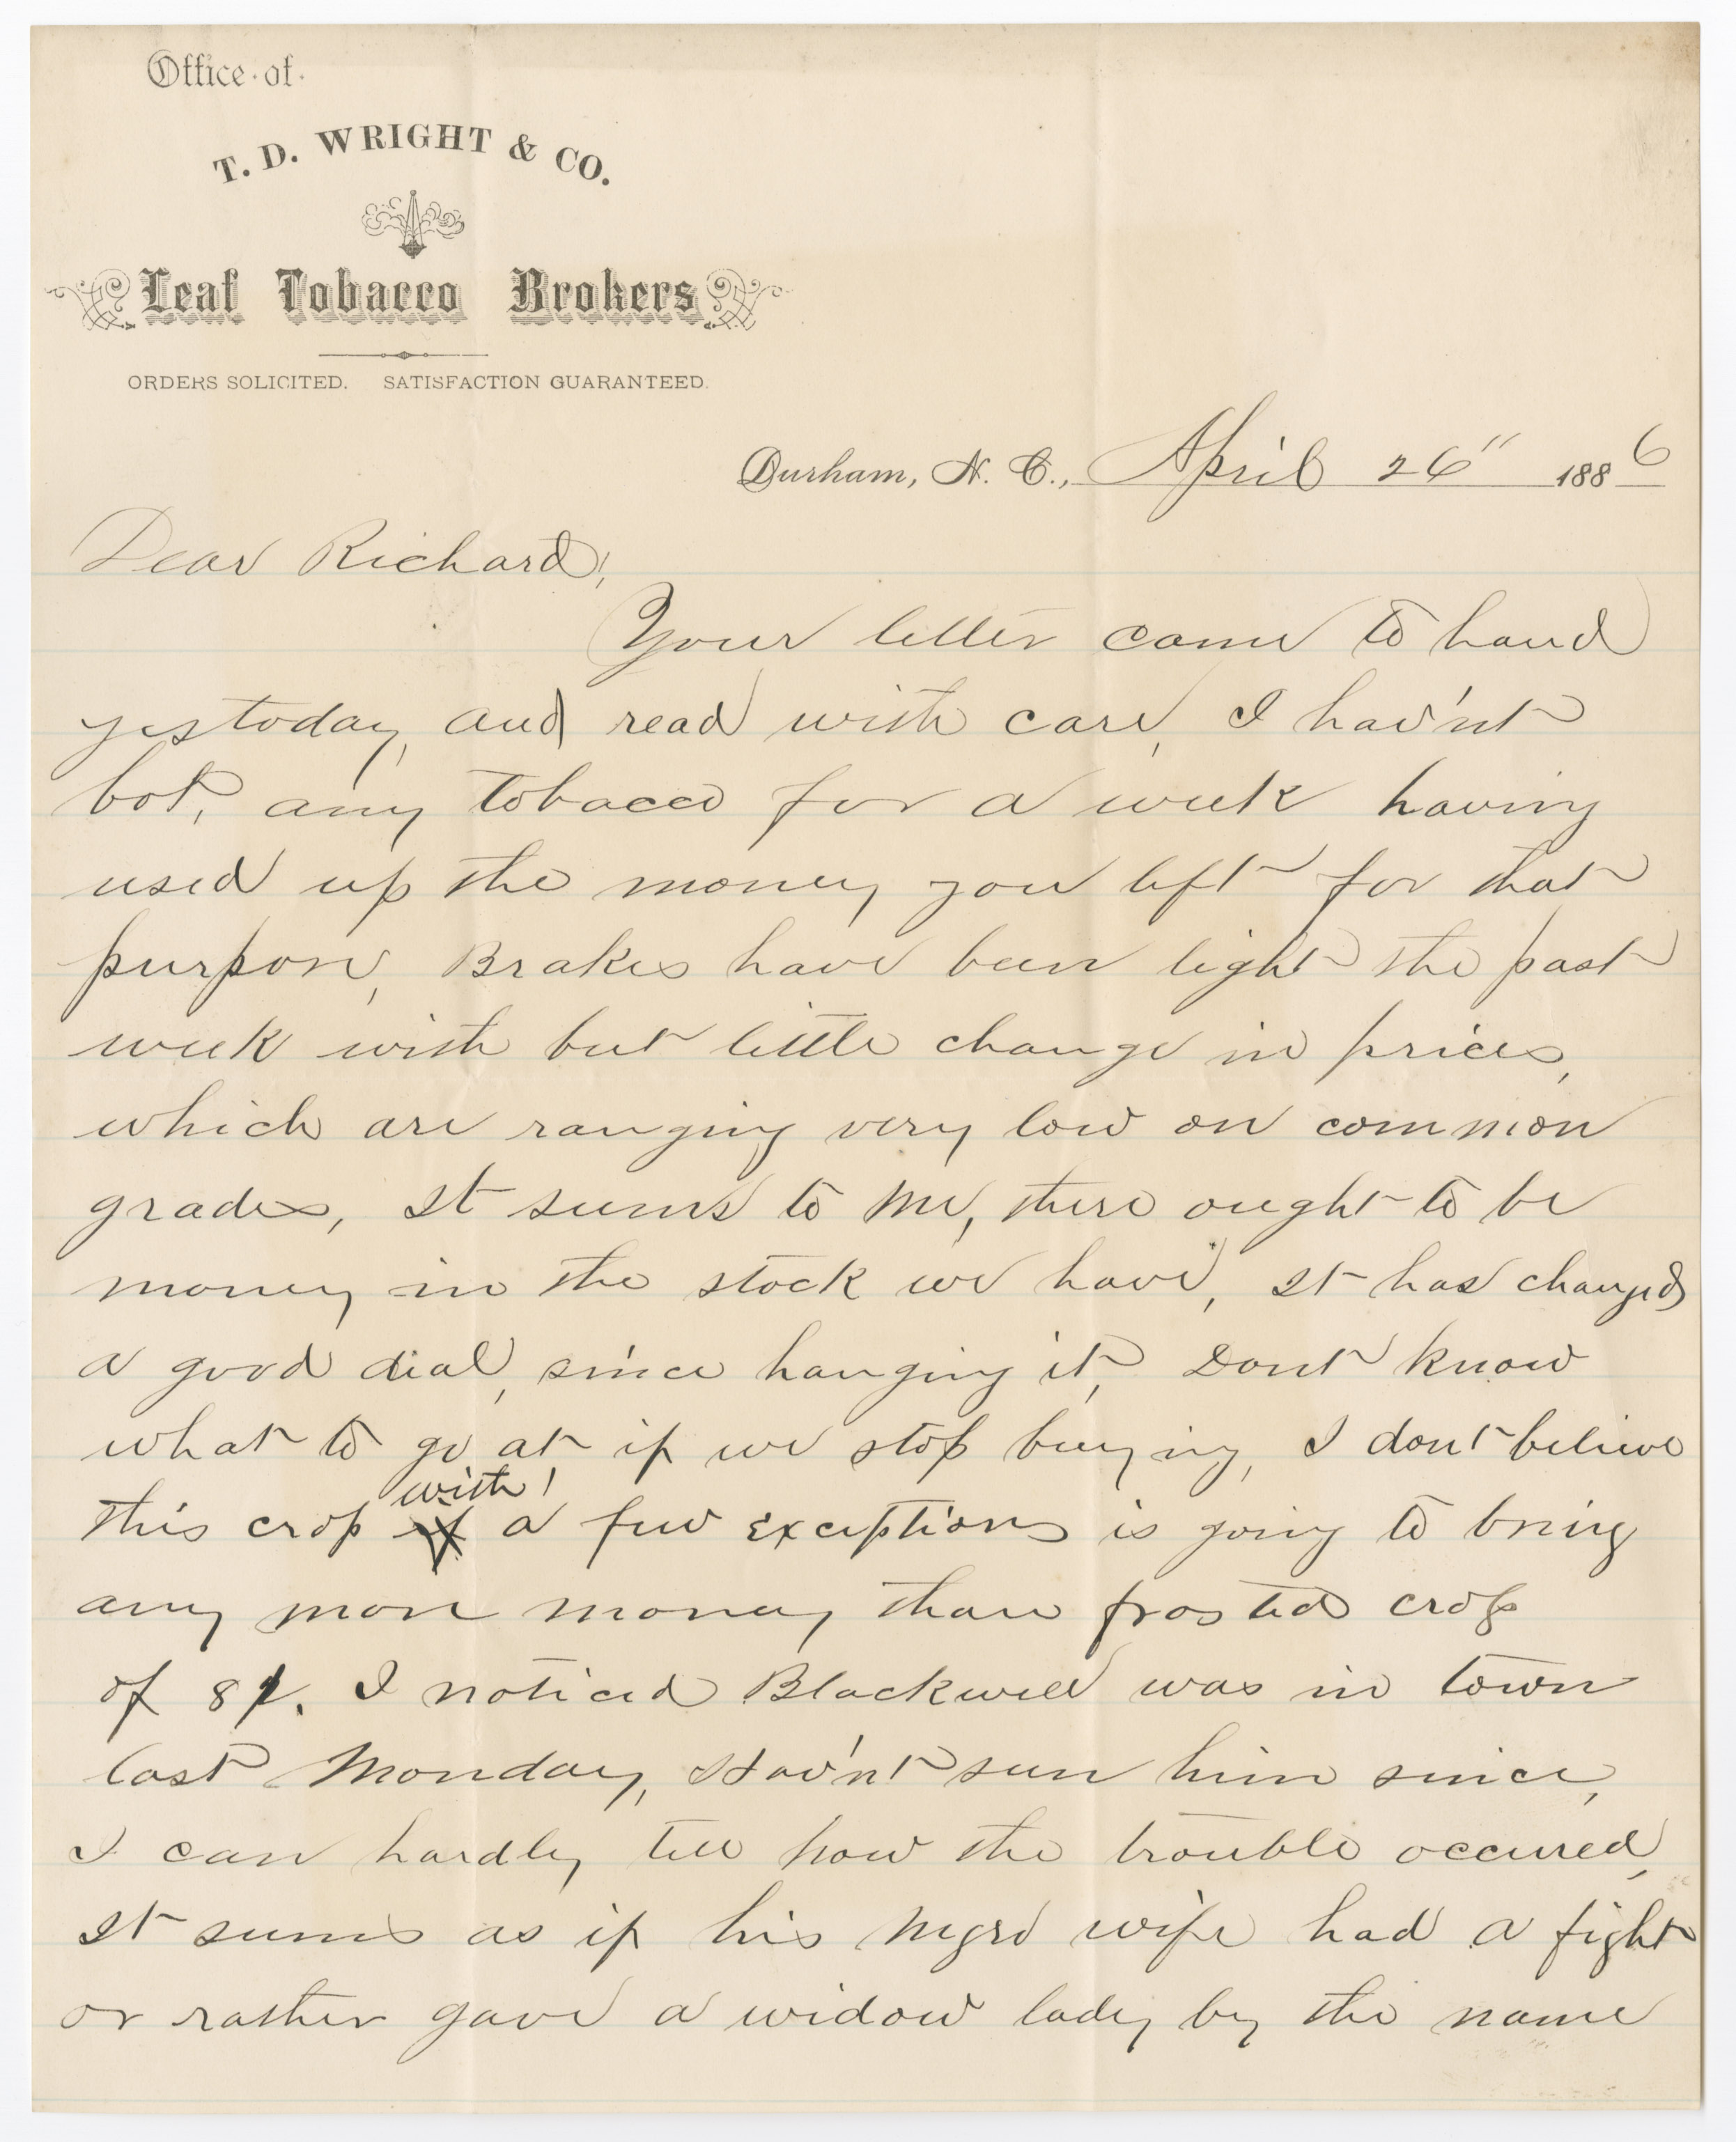 Office of
T. D. WRIGHT & CO.
Leaf Tobacco Brokers
ORDERS SOLICITED. SATISFACTION GUARANTEED.
Durham, N. C., April 26" 1886
Dear Richard,
Your letter came to hand
yestoday, and read with care, I hav'nt
bot, any tobacco for a week having
used up the money you left for that
purpose, Brakes have been light the past
week with but little change in prices,
which are ranging very low on common
grades, It seems to me, there ought to be
money in the stock we have, It has changed
a good deal, since hanging it, Dont know
what to go at if we stop buying, I dont believe
with
this crop of a few exceptions is going to bring
any more money than frosted crop
of 81. I noticed Blackwell was in town
last Monday, Hav'nt seen him since,
I can hardly tell how the trouble occured,
It seems as if his negro wife had a fight
or rather gave a widow lady by the name